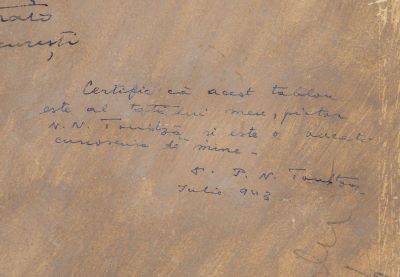 curești
Certific că acest tablou
este al tatălui meu, pictor
N. N. Tonitza și este o
cunoscută de mine -
P. N. Tonitza
Iulie 943